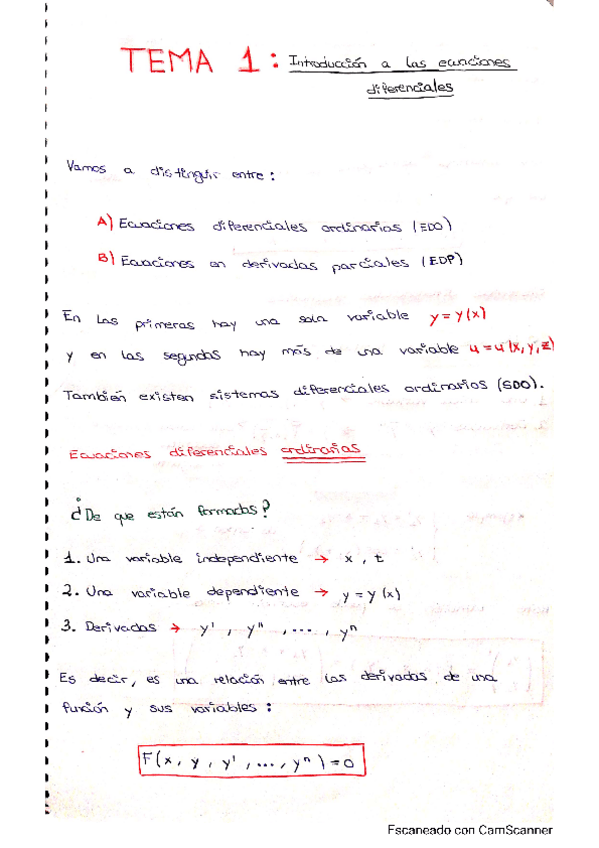 TEMA 1: Introducción a las ecuaciones
diferenciales
Vamos a distinguir entre:
A) Ecuaciones diferenciales ordinarias (EDO)
B) Ecuaciones en derivadas parciales (EDP)
En las primeras hay una sola variable y = y(x)
y en las segundas hay más de una variable u = u(x,y,z)
También existen sistemas diferenciales ordinarios (SDO).
Ecuaciones diferenciales ordinarias
¿De que están formadas?
1. Una variable independiente → x, t
2. Una variable dependiente → y = y(x)
3. Derivadas → y', y'', ..., yⁿ
Es decir, es una relación entre las derivadas de una
función y sus variables:
F(x, y, y', ..., yⁿ) = 0
Escaneado con CamScanner